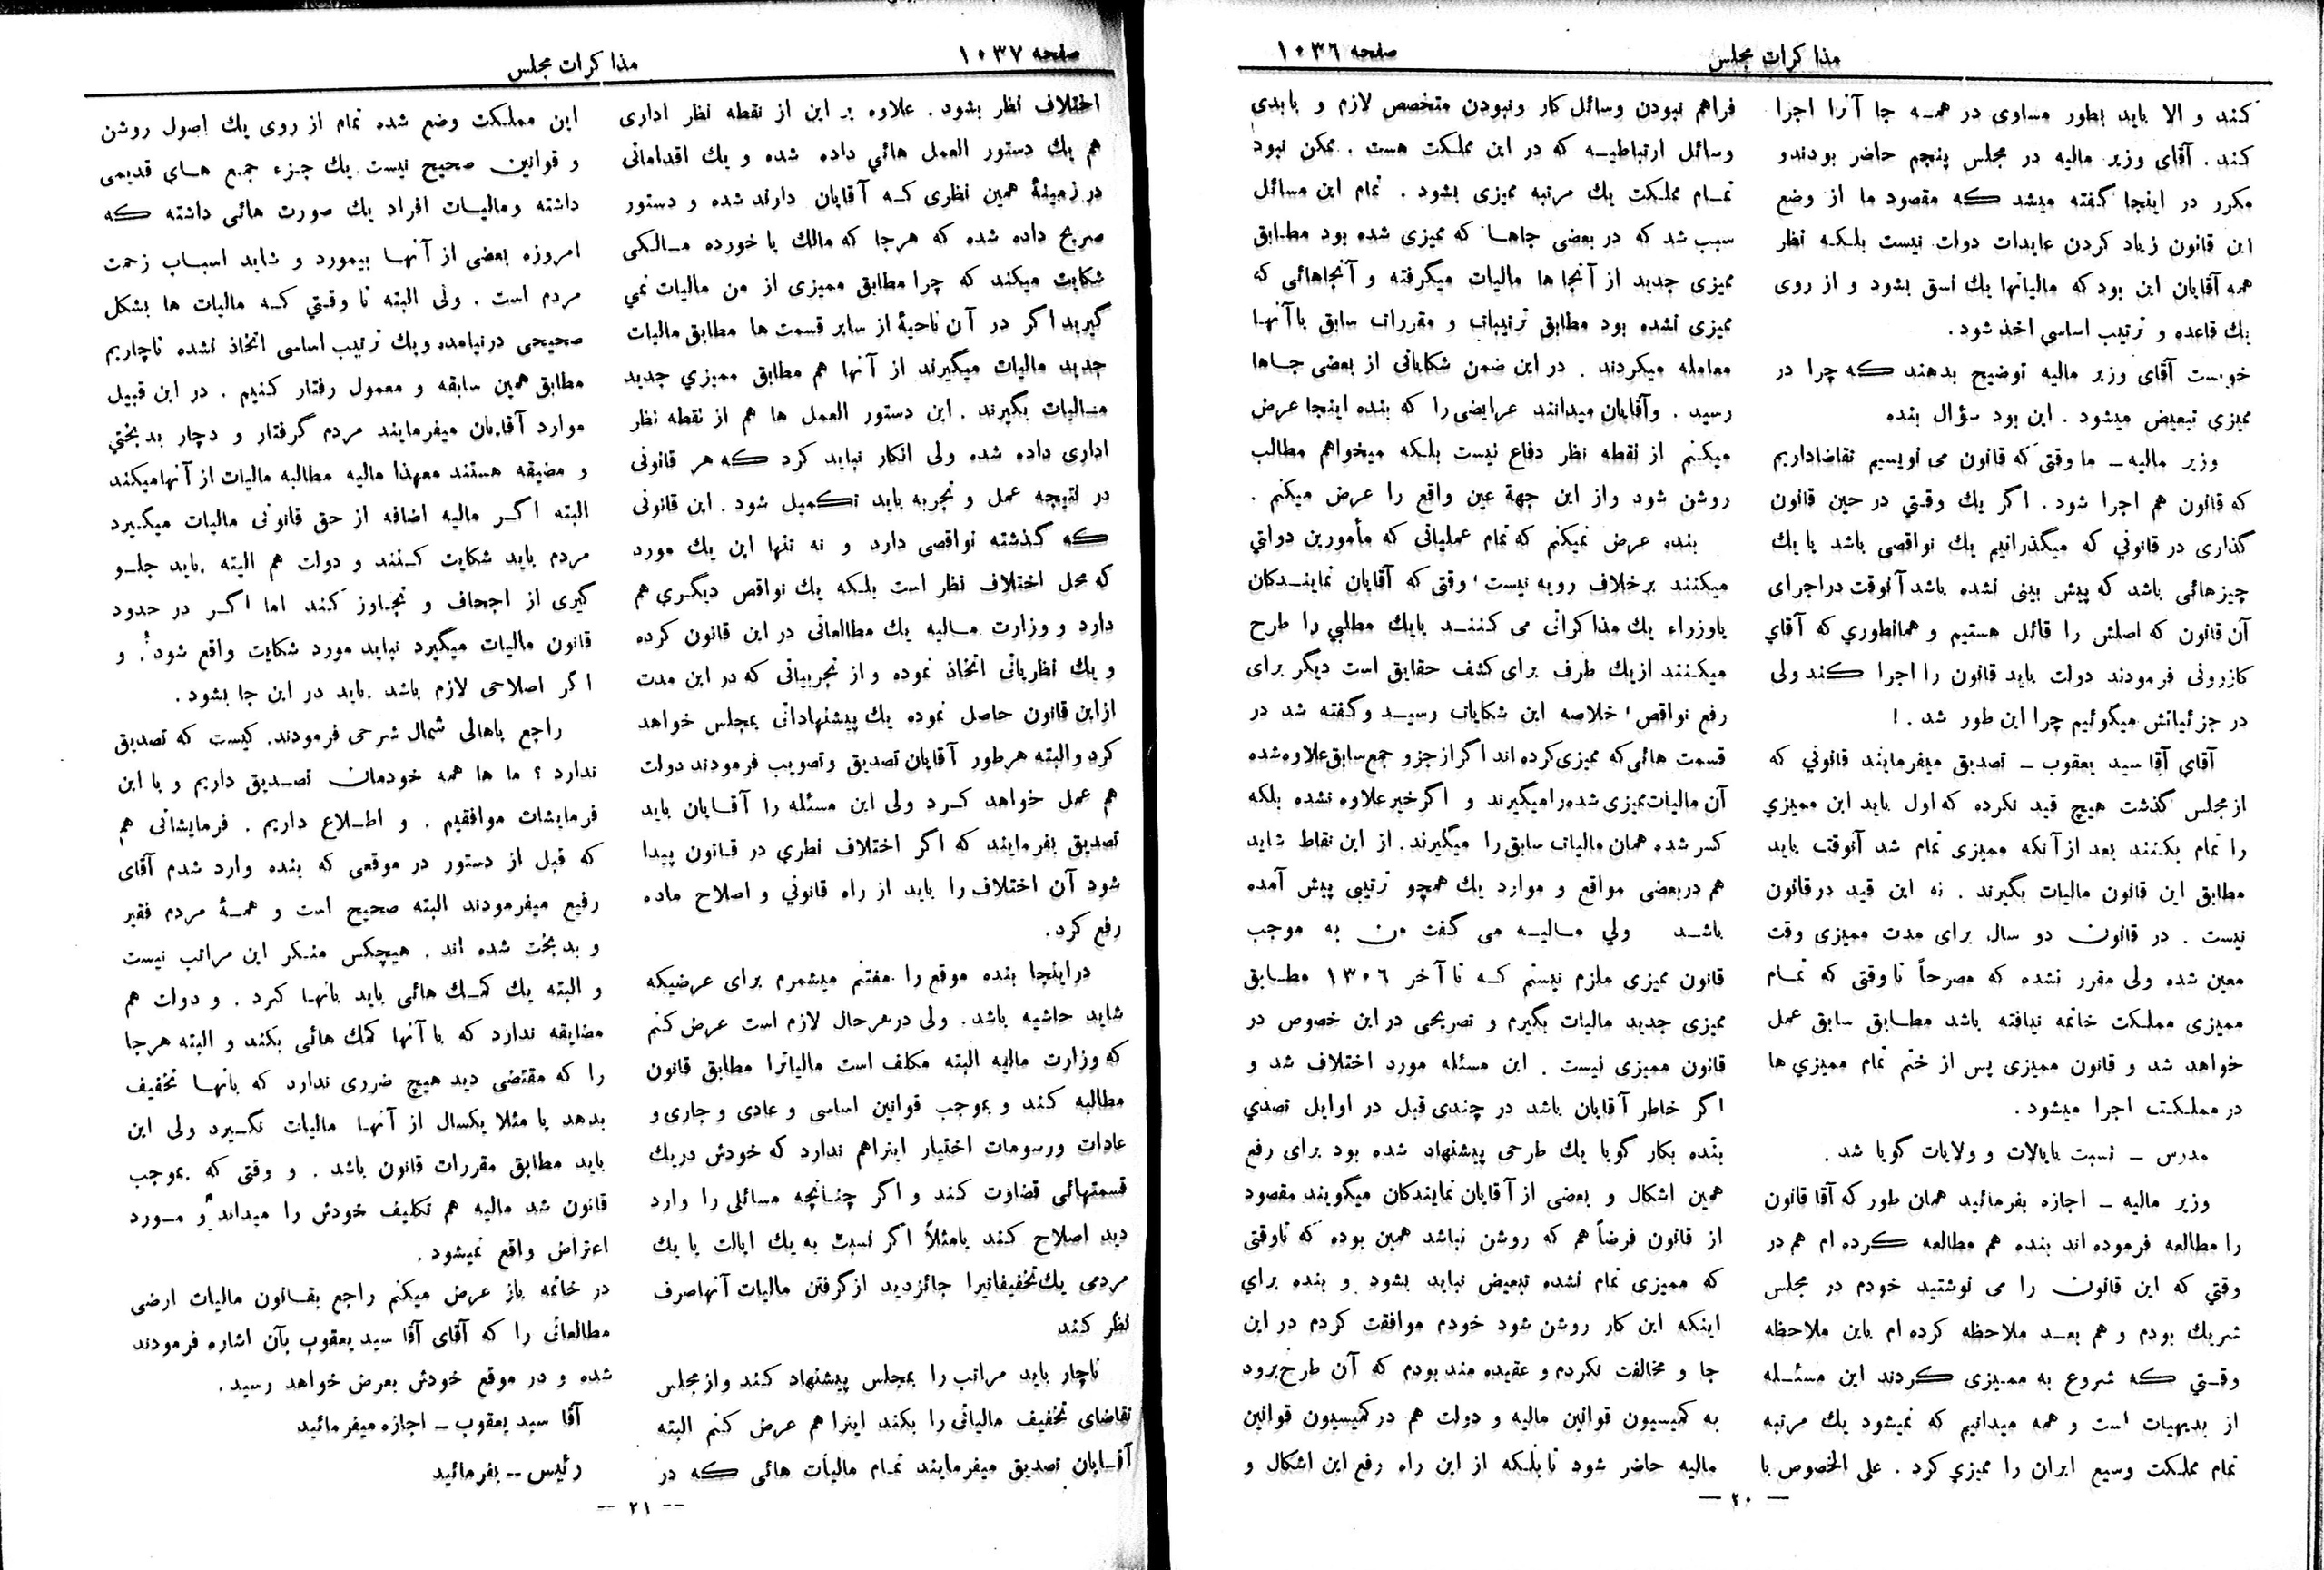 مذاکرات مجلس
صفحه ۱۰۳۶
کنند و الا باید بطور مساوی در همه جا آنرا اجرا
کند . آقای وزیر مالیه در مجلس پنجم حاضر بودندو
مکرر در اینجا گفته میشد که مقصود ما از وضع
این قانون زیاد کردن عایدات دولت نیست بلکه نظر
همه آقایان این بود که مالیاتها یك نسق بشود و از روی
یك قاعده و ترتیب اساسی اخذ شود .
خوبست آقای وزیر مالیه توضیح بدهند که چرا در
ممیزی تبعیض میشود . این بود سؤال بنده
وزیر مالیه ــ ما وقتی که قانون می نویسیم تقاضاداریم
که قانون هم اجرا شود . اگر یك وقتی در حین قانون
گذاری در قانونی که میگذرانیم یك نواقصی باشد یا یك
چیزهائی باشد که پیش بینی نشده باشد آنوقت دراجرای
آن قانون که اصلش را قائل هستیم و همانطوری که آقای
کازرونی فرمودند دولت باید قانون را اجرا کند ولی
در جزئیاتش میگوئیم چرا این طور شد . !
آقای آقا سید یعقوب ــ تصدیق میفرمایند قانونی که
از مجلس گذشت هیچ قید نکرده که اول باید این ممیزی
را تمام بکنند بعد از آنکه ممیزی تمام شد آنوقت باید
مطابق این قانون مالیات بگیرند . نه این قید درقانون
نیست . در قانون دو سال برای مدت ممیزی وقت
معین شده ولی مقرر نشده که مصرحاً تا وقتی که تمام
ممیزی مملکت خاتمه نیافته باشد مطابق سابق عمل
خواهد شد و قانون ممیزی پس از ختم تمام ممیزي ها
در مملکت اجرا میشود .
مدرس ــ نسبت بایالات و ولایات گویا شد .
وزیر مالیه ــ اجازه بفرمائید همان طور که آقا قانون
را مطالعه فرموده اند بنده هم مطالعه کرده ام هم در
وقتی که این قانون را می نوشتید خودم در مجلس
شریك بودم و هم بعد ملاحظه کرده ام باین ملاحظه
وقتی که شروع به ممیزی کردند این مسئله
از بدیهیات است و همه میدانیم که نمیشود یك مرتبه
تمام مملکت وسیع ایران را ممیزي کرد . علی الخصوص با
فراهم نبودن وسائل کار ونبودن متخصص لازم و با بدی
وسائل ارتباطیه که در این مملکت هست . ممکن نبود
تمام مملکت یك مرتبه ممیزی بشود . تمام این مسائل
سبب شد که در بعضی جاها که ممیزی شده بود مطابق
ممیزی جدید از آنجا ها مالیات میگرفته و آنجاهائی که
ممیزی نشده بود مطابق ترتیبات و مقررات سابق باآنها
معامله میکردند . در این ضمن شکایاتی از بعضی جاها
رسید . وآقایان میدانند عرایضی را که بنده اینجا عرض
میکنم از نقطه نظر دفاع نیست بلکه میخواهم مطالب
روشن شود واز این جهة عین واقع را عرض میکنم .
بنده عرض نمیکنم که تمام عملیاتی که مأمورین دولتی
میکنند برخلاف رویه نیست ، وقتی که آقایان نمایندکان
یاوزراء یك مذاکراتی می کنند یایك مطلبی را طرح
میکنند ازیك طرف برای کشف حقایق است دیگر برای
رفع نواقص ، خلاصه این شکایات رسید وگفته شد در
قسمت هائی که ممیزی کرده اند اگر از جزو جمع سابق علاوه شده
آن مالیات ممیزی شده را میگیرند و اگر خیر علاوه نشده بلکه
کسر شده همان مالیات سابق را میگیرند . از این نقاط شاید
هم دربعضی مواقع و موارد یك همچو ترتیبی پیش آمده
باشد ولي مالیه می گفت من به موجب
قانون ممیزی ملزم نیستم که تا آخر ۱۳۰۶ مطابق
ممیزی جدید مالیات بگیرم و تصریحی در این خصوص در
قانون ممیزی نیست . این مسئله مورد اختلاف شد و
اگر خاطر آقایان باشد در چندی قبل در اوایل تصدي
بنده بکار گویا یك طرحی پیشنهاد شده بود برای رفع
همین اشکال و بعضی از آقایان نمایندکان میگویند مقصود
از قانون فرضاً هم که روشن نباشد همین بوده که تاوقتی
که ممیزی تمام نشده تبعیض نباید بشود و بنده برای
اینکه این کار روشن شود خودم موافقت کردم در این
جا و مخالفت نکردم و عقیده مند بودم که آن طرح برود
به کمیسیون قوانین مالیه و دولت هم در کمیسیون قوانین
مالیه حاضر شود تا بلکه از این راه رفع این اشکال و
— ۲۰ —
صفحه ۱۰۳۷
مذاکرات مجلس
اختلاف نظر بشود . علاوه بر این از نقطه نظر اداری
هم یك دستور العمل هائي داده شده و یك اقداماتی
در زمینهٔ همین نظری که آقایان دارند شده و دستور
صریح داده شده که هرجا که مالك یا خورده مالکی
شکایت میکند که چرا مطابق ممیزی از من مالیات نمي
گیرید اگر در آن ناحیهٔ از سایر قسمت ها مطابق مالیات
جدید مالیات میگیرند از آنها هم مطابق ممیزي جدید
مالیات بگیرند . این دستور العمل ها هم از نقطه نظر
اداری داده شده ولی انکار نباید کرد که هر قانونی
در نتیجه عمل و تجربه باید تکمیل شود . این قانونی
که گذشته نواقصی دارد و نه تنها این یك مورد
که محل اختلاف نظر است بلکه یك نواقص دیگری هم
دارد و وزارت مالیه یك مطالعاتی در این قانون کرده
و یك نظریاتی اتخاذ نموده و از تجربیاتی که در این مدت
ازاین قانون حاصل نموده یك پیشنهاداتی بمجلس خواهد
کرد والبته هرطور آقایان تصدیق وتصویب فرمودند دولت
هم عمل خواهد کرد ولی این مسئله را آقایان باید
تصدیق بفرمایند که اگر اختلاف نظری در قانون پیدا
شود آن اختلاف را باید از راه قانونی و اصلاح ماده
رفع کرد .
دراینجا بنده موقع را مغتنم میشمرم برای عرضیکه
شاید حاشیه باشد . ولی در هر حال لازم است عرض کنم
که وزارت مالیه البته مکلف است مالیاترا مطابق قانون
مطالبه کند و بموجب قوانین اساسی و عادی و جاری و
عادات ورسومات اختیار اینراهم ندارد که خودش دریك
قسمتهائی قضاوت کند و اگر چنانچه مسائلی را وارد
دید اصلاح کند یامثلاً اگر نسبت به یك ایالت یا یك
مردمی یك تخفیفاتیرا جائزدید ازگرفتن مالیات آنهاصرف
نظر کند
ناچار باید مراتب را بمجلس پیشنهاد کند وازمجلس
تقاضای تخفیف مالیاتی را بکند اینرا هم عرض کنم البته
آقایان تصدیق میفرمایند تمام مالیات هائی که در
این مملکت وضع شده تمام از روی یك اصول روشن
و قوانین صحیح نیست یك جزء جمع های قدیمی
داشته ومالیات افراد یك صورت هائی داشته که
امروزه بعضی از آنها بیمورد و شاید اسباب زحمت
مردم است . ولی البته تا وقتی که مالیات ها بشکل
صحیحی درنیامده ویك ترتیب اساسی اتخاذ نشده ناچاریم
مطابق همین سابقه و معمول رفتار کنیم . در این قبیل
موارد آقایان میفرمایند مردم گرفتار و دچار بدبختي
و مضیقه هستند معهذا مالیه مطالبه مالیات از آنهامیکند
البته اگر مالیه اضافه از حق قانونی مالیات میگیرد
مردم باید شکایت کنند و دولت هم البته باید جلو
گیری از اجحاف و تجاوز کند اما اگر در حدود
قانون مالیات میگیرد نباید مورد شکایت واقع شود . و
اگر اصلاحی لازم باشد باید در این جا بشود .
راجع باهالی شمال شرحی فرمودند. کیست که تصدیق
ندارد ؟ ما ها همه خودمان تصدیق داریم و با این
فرمایشات موافقیم . و اطلاع داریم . فرمایشاتی هم
که قبل از دستور در موقعی که بنده وارد شدم آقای
رفیع میفرمودند البته صحیح است و همهٔ مردم فقیر
و بدبخت شده اند . هیچکس منکر این مراتب نیست
و البته یك کمك هائی باید بانها کرد . و دولت هم
مضایقه ندارد که با آنها کمك هائی بکند و البته هرجا
را که مقتضی دید هیچ ضرری ندارد که بانها تخفیف
بدهد یا مثلا یکسال از آنها مالیات نگیرد ولی این
باید مطابق مقررات قانون باشد . و وقتی که بموجب
قانون شد مالیه هم تکلیف خودش را میداند و مورد
اعتراض واقع نمیشود .
در خاتمه باز عرض میکنم راجع بقانون مالیات ارضی
مطالعاتی را که آقای آقا سید یعقوب بآن اشاره فرمودند
شده و در موقع خودش بعرض خواهد رسید .
آقا سید یعقوب ــ اجازه میفرمائید
رئیس ــ بفرمائید
— ۲۱ —